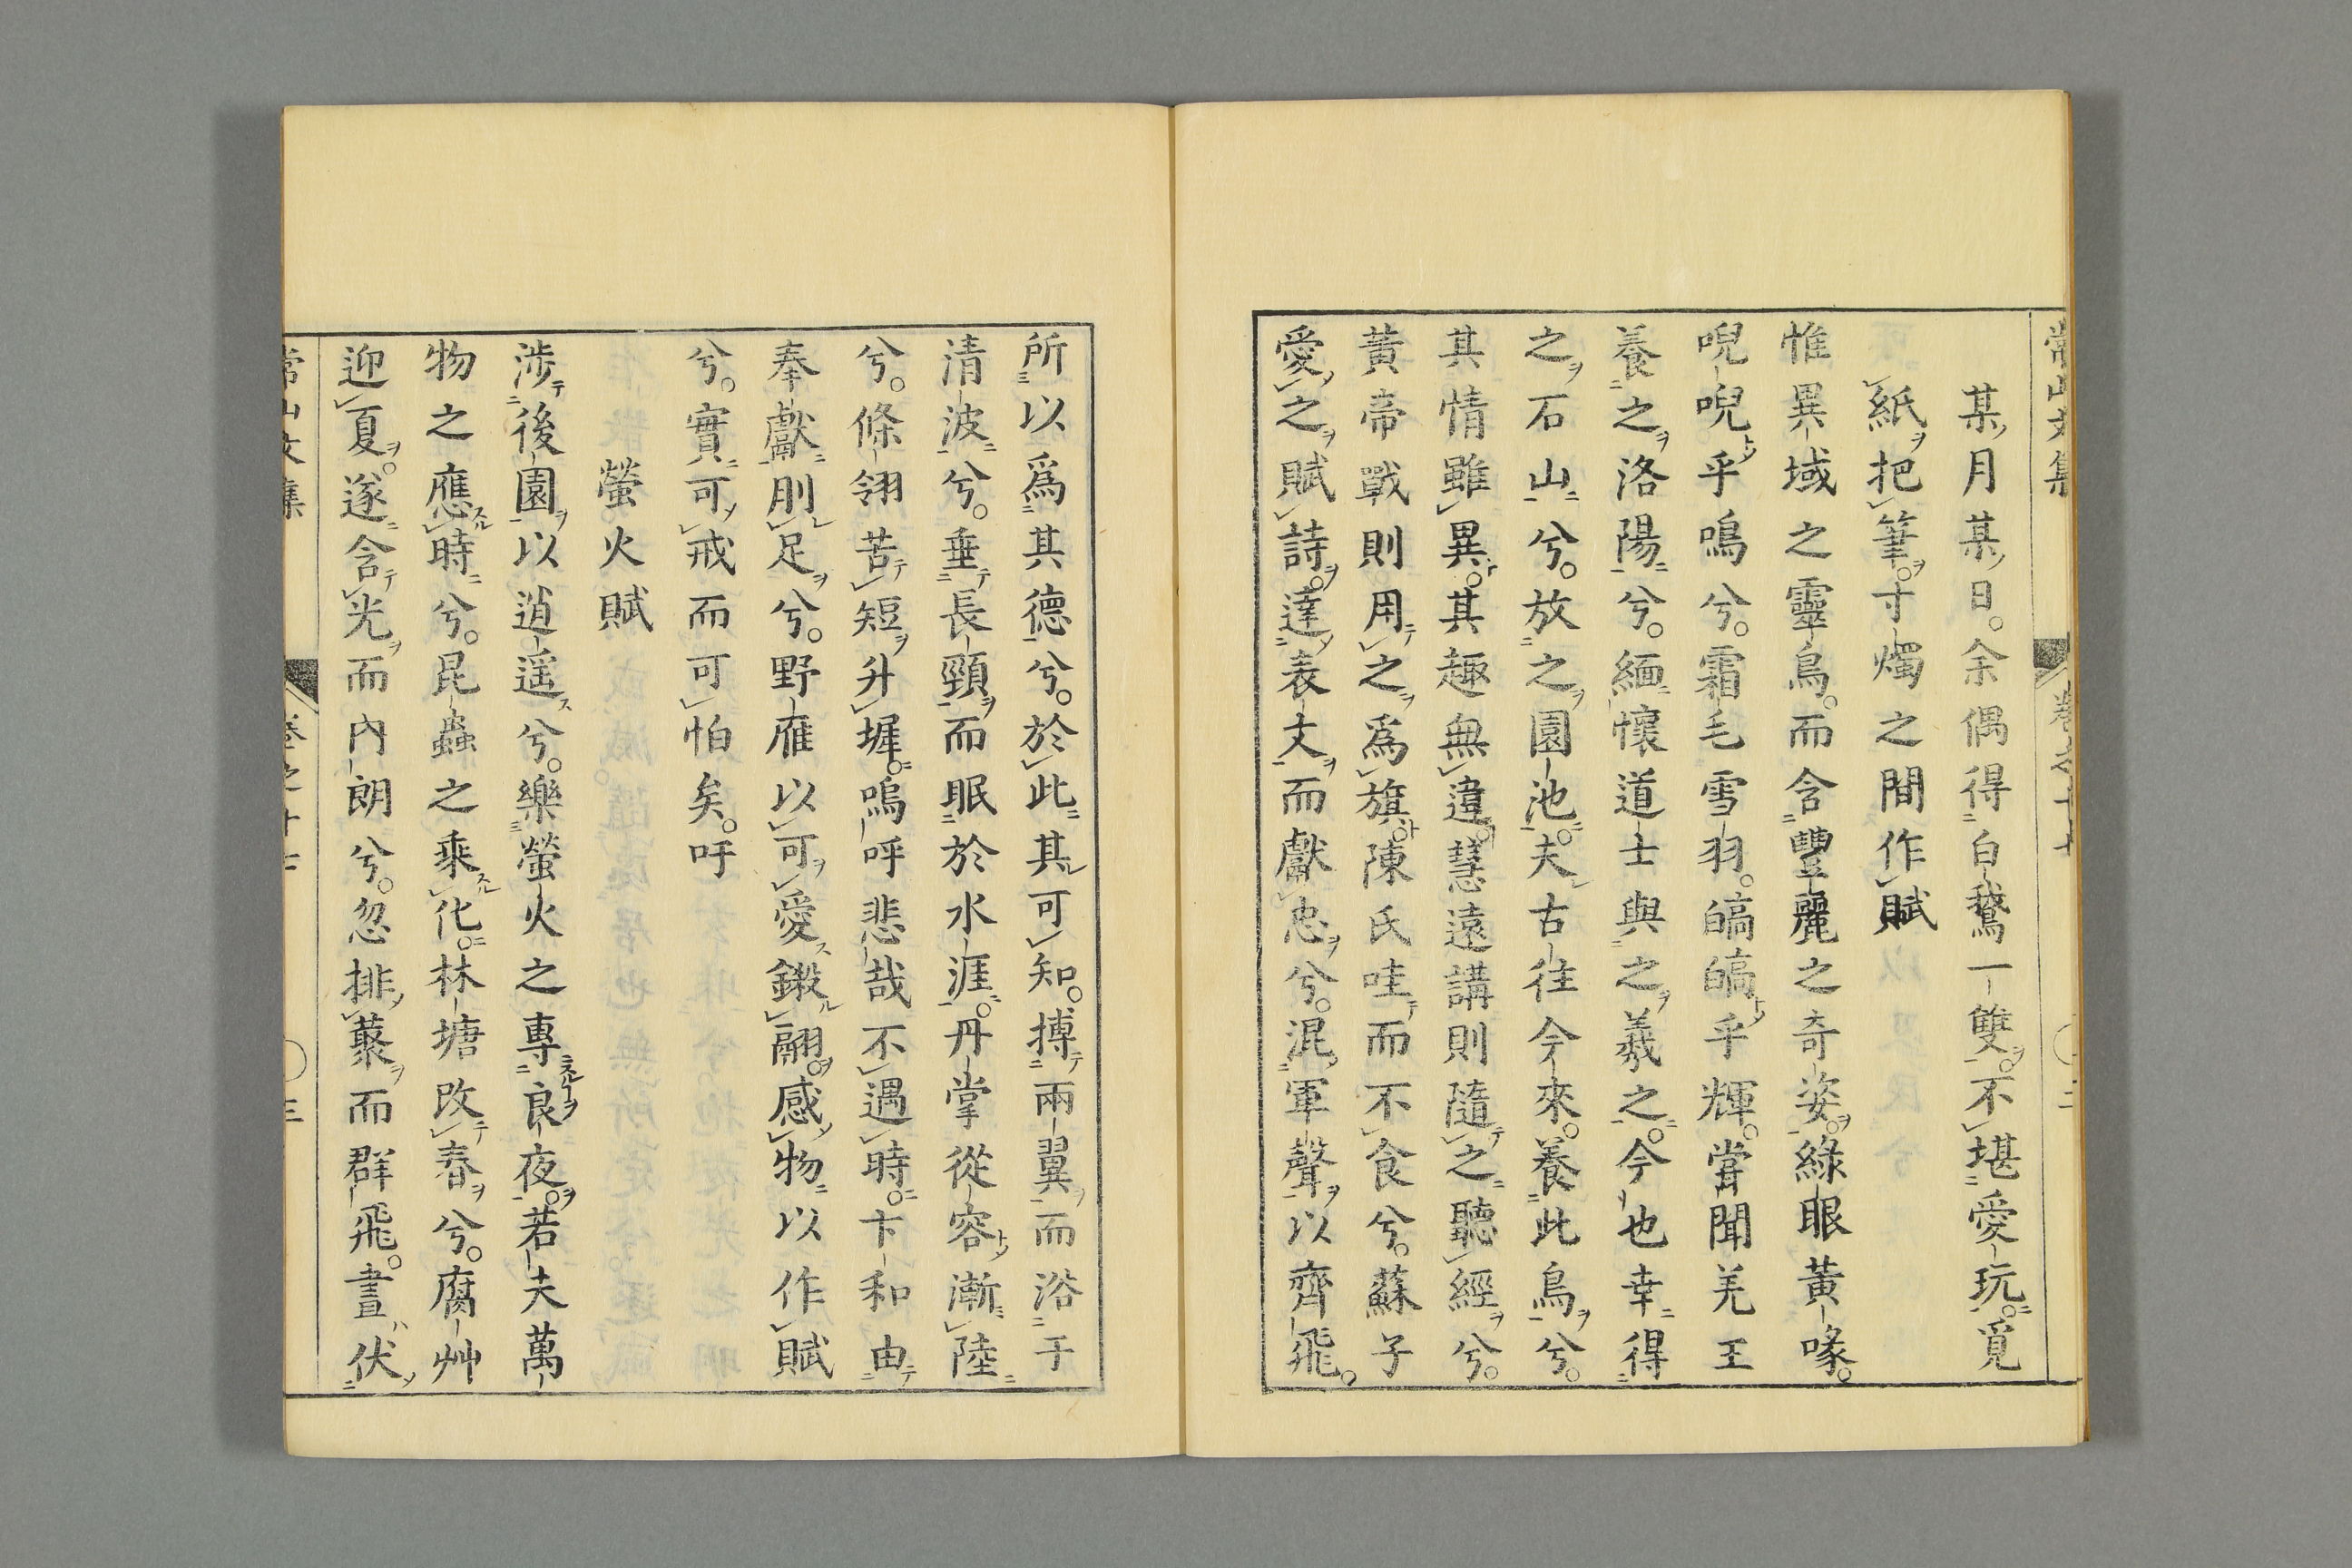 常山文集 卷之十七
某月某日。余偶得白鵞一雙。不堪愛玩。覓
紙把筆。寸燭之間作賦
惟異域之靈鳥。而含豐麗之奇姿。綠眼黃喙。
唲唲乎鳴兮。霜毛雪羽。皜皜乎輝。甞聞羌王
養之洛陽兮。緬懷道士與之羲之。今也幸得
之石山兮。放之園池。夫古往今來。養此鳥兮。
其情雖異。其趣無違。慧遠講則隨之聽經兮。
黃帝戰則用之爲旗。陳氏哇而不食兮。蘇子
愛之賦詩。達表丈而獻忠兮。混軍聲以齊飛。
所以爲其德兮。於此其可知。搏兩翼而浴于
清波兮。垂長頸而眠於水涯。丹掌從容漸陸
兮。條翎苦短升墀。嗚呼悲哉不遇時。卞和由
奉獻刖足兮。野雁以可愛鍛翮。感物以作賦
兮。實可戒而可怕矣。吁
螢火賦
涉後園以逍遥兮。樂螢火之專良夜。若夫萬
物之應時兮。昆蟲之乘化。林塘改春兮。腐艸
迎夏。遂含光而內朗兮。忽排蘩而群飛。晝伏
常山文集 卷之十七 三